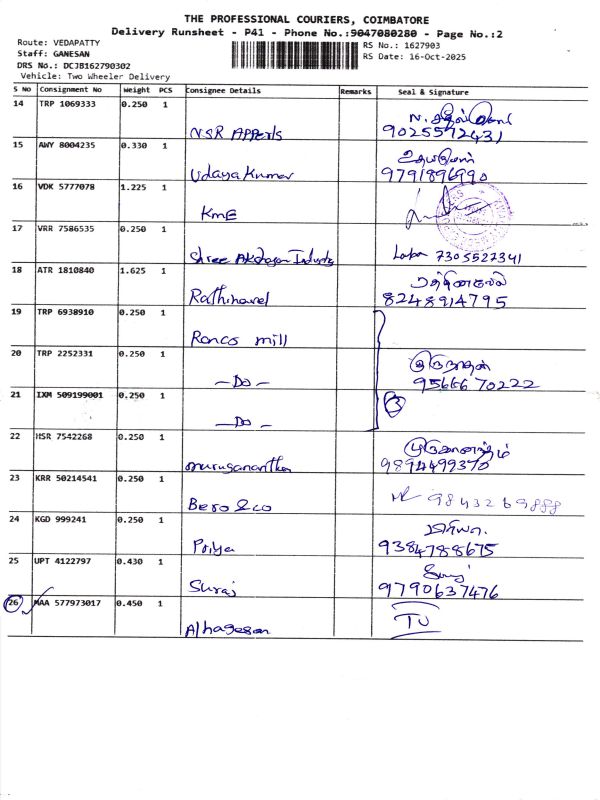 THE PROFESSIONAL COURIERS, COIMBATORE
Delivery Runsheet - P41 - Phone No.:9047080280 - Page No.:2
Route: VEDAPATTY
RS No.: 1627903
Staff: GANESAN
RS Date: 16-Oct-2025
DRS No.: DCJB162790302
Vehicle: Two Wheeler Delivery
S No Consignment No Weight PCS Consignee Details Remarks Seal & Signature
14 TRP 1069333 0.250 1
NSR
9025572431
15 AWY 8004235 0.330 1
Udaya Kumar
உதயகுமார்
9791896990
16 VDK 5777078 1.225 1
KmE
17 VRR 7586535 0.250 1
Shree
7305527341
18 ATR 1810840 1.625 1
Rathinavel
ரத்தினவேல்
8248914795
19 TRP 6938910 0.250 1
Ronco mill
20 TRP 2252331 0.250 1
- Do -
9566670222
21 IXM 509199001 0.250 1
- Do -
3
22 HSR 7542268 0.250 1
9894499370
23 KRR 50214541 0.250 1
Bero & co
9843269888
24 KGD 999241 0.250 1
Priya
9384788675
25 UPT 4122797 0.430 1
Suraj
9790637476
26 MAA 577973017 0.450 1
Alhagesan